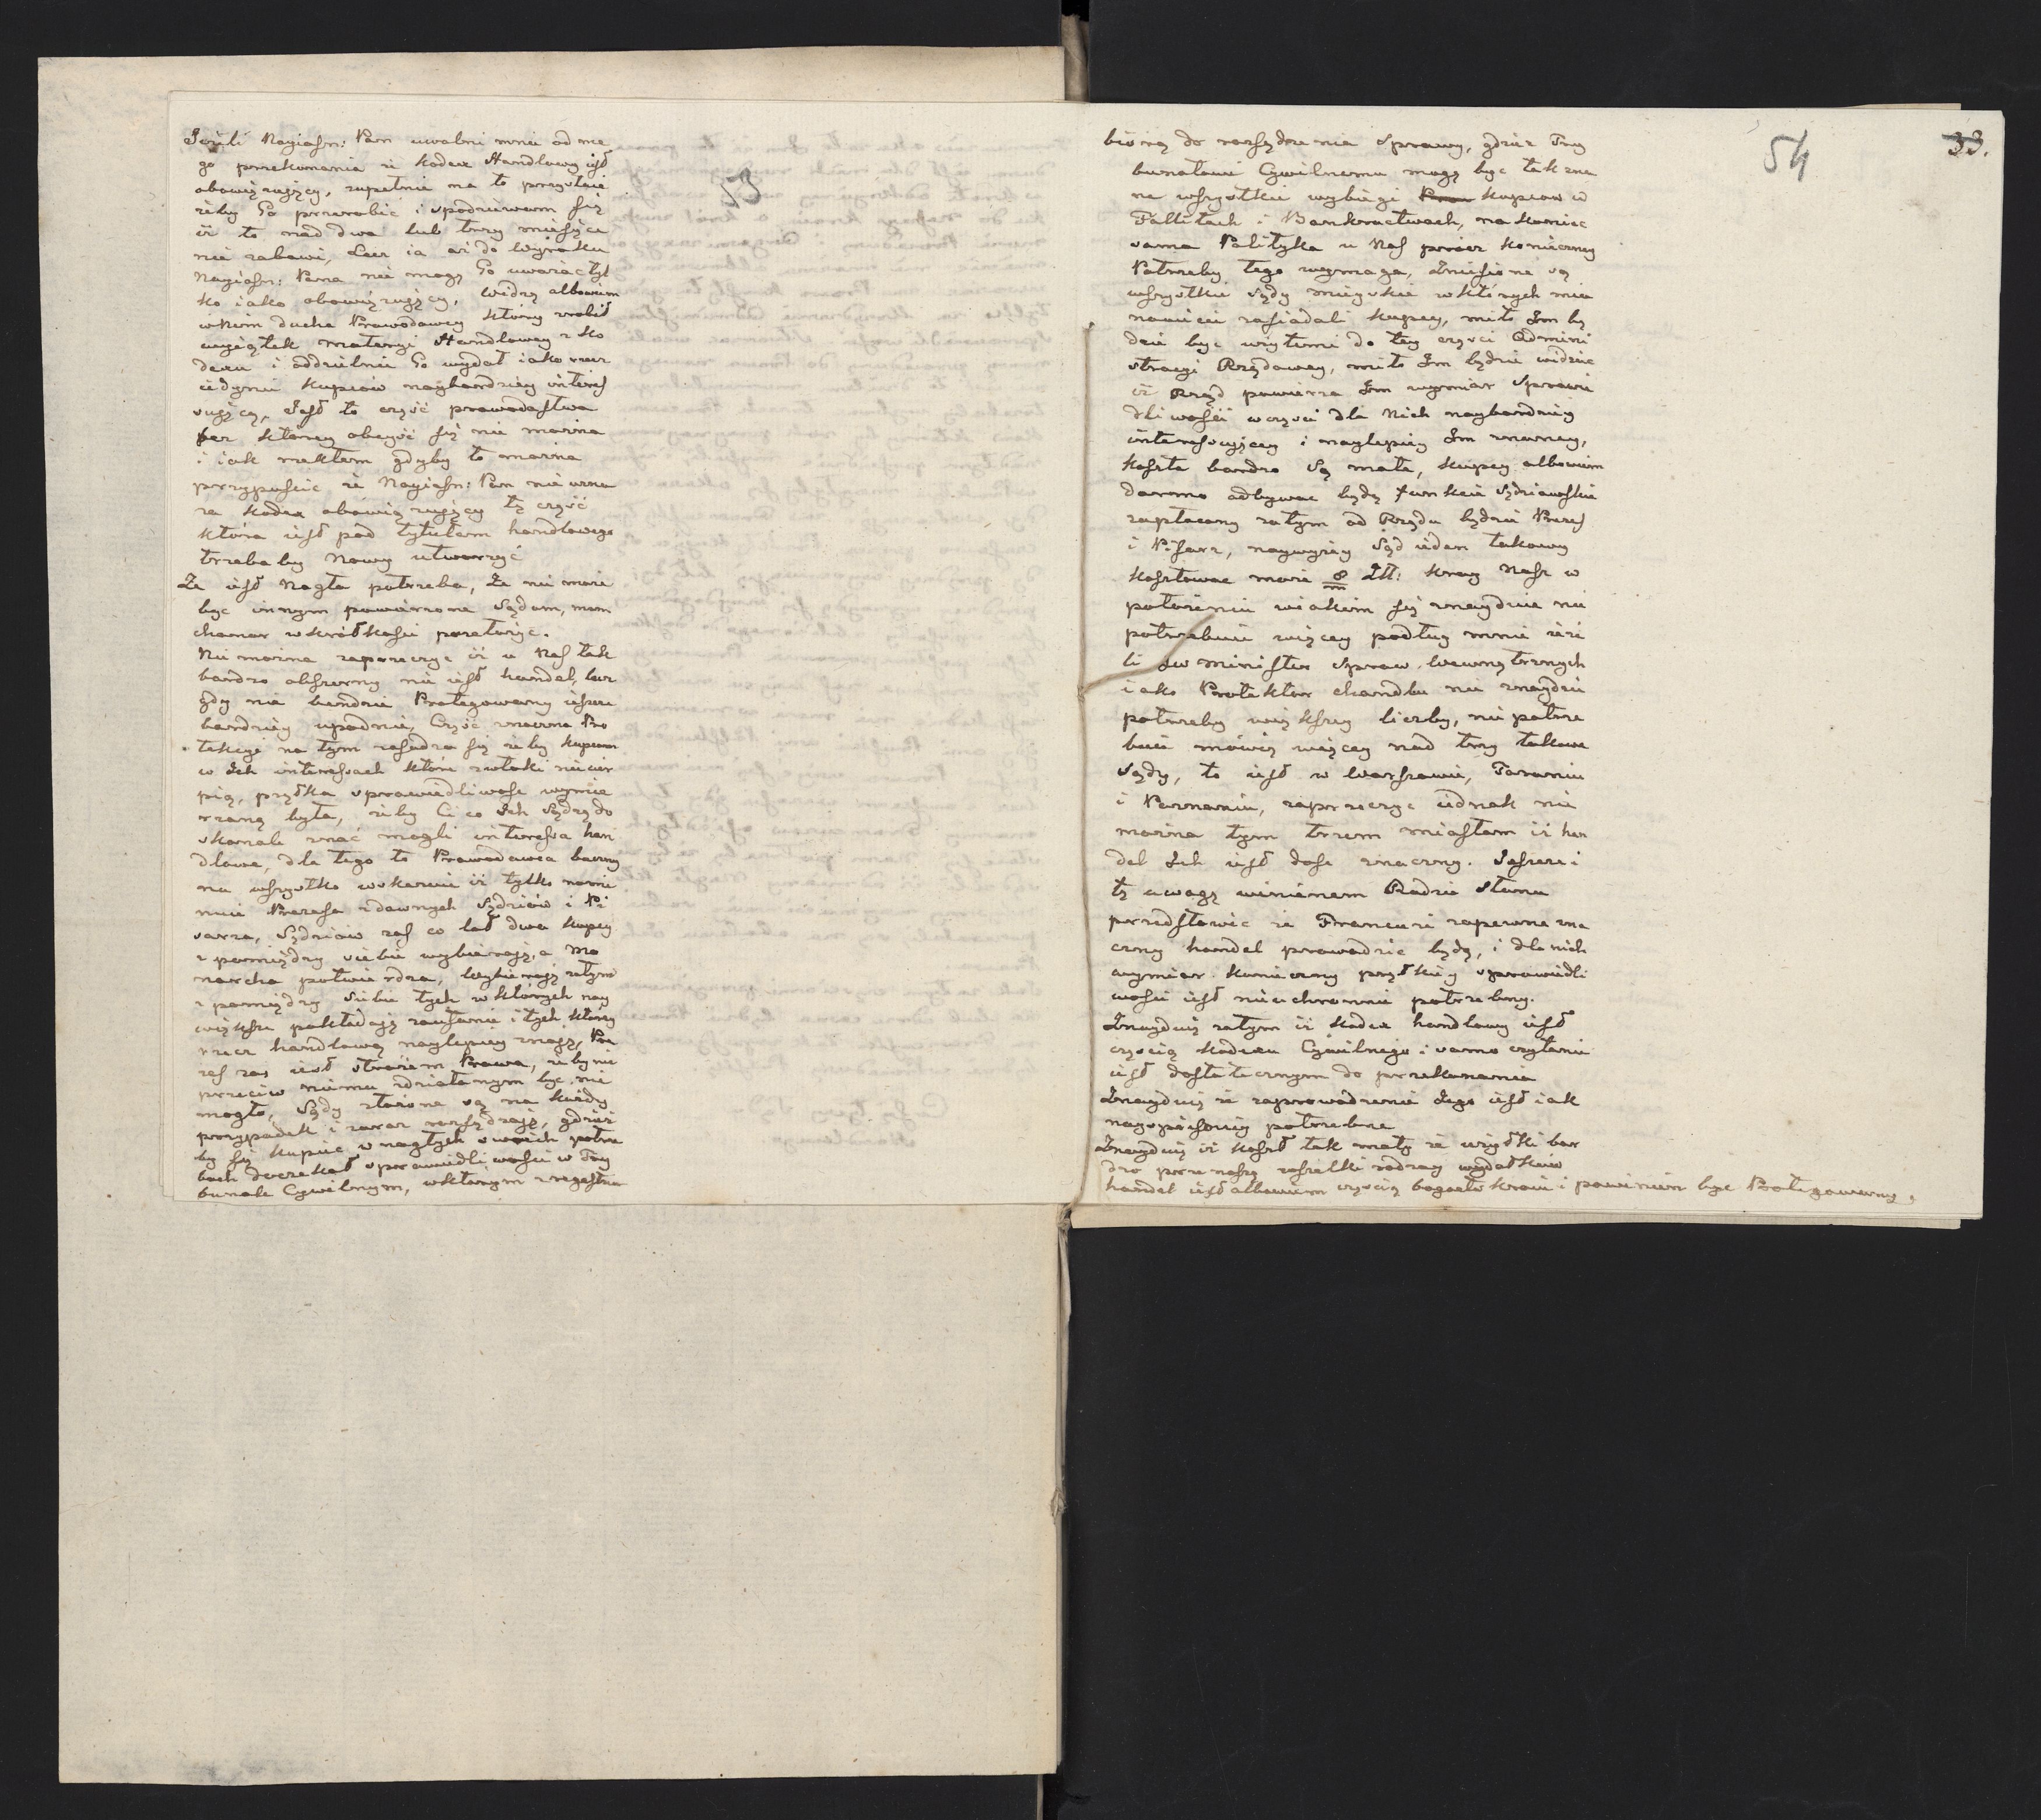 53
Jeżeli Nayiasn: Pan uwolni mnie od me
go przekonania że Kodex Handlowy iest
obowięzuięcy, zupełnie na to przystaię
żeby Go przerobić i spodziewam się
iż to nad dwa lub trzy miesięce
nie zabawi, Lecz ia aż do wyroku
Nayiasn: Pana nie mogę Go uważać tyl
ko iako obowięzuięcy, widzę albowiem
w Nim ducha Prawodawcy który zrobił
wyiątek materyi Handlowey z Ko
dexu i oddzielnie Go wydał iako rzecz
iedynie Kupców naybardziey interes
suięcą, Jest to część prawodastwa
bez którey obeyść się nie można
i iak rzekłem gdyby to można
przypuścić że Nayiasn: Pan nie uzna
za Kodex obowięzuięcy tę część
która iest pod tytułem handlowego
trzeba by Nowy utworzyć
Że iest Nagła potrzeba, Że nie może
być innym powierzone Sądom, mam
chonor w krótkości powtorzyć.
Nie można zaprzeczyć iż u Nas tak
bardzo obszerny nie iest handel, lecz
gdy nie bendzie Protegowany ieszcze
bardziey upadnie, Część znaczna Pro
tekcyi na tym zasadza się żeby Kupcom
w Ich interessach które zwłoki nie cier
pią, prędka sprawiedliwość wymie
rzaną była, żeby Ci co Ich Sędzą do
skonale znać mogli interessa han
dlowe, dla tego to Prawodawca baczny
na wszystko wskazuie iż tylko nomi
nuie Prezesa z dawnych Sędziów i Pi
sarza, Sędziów zaś co lat dwa Kupcy
z pomiędzy siebie wybieraią, a Mo
narcha potwierdza, Wybieraią zatym
z pomiędzy siebie tych w których nay
większe pokładaią zaufanie i tych którzy
rzecz handlową naylepiey znaią, Pre
zes zaś iest stróżem Prawa, żeby nic
przeciw niemu zdziałanym być nie
mogło, Sądy złożone są na każdy
przypadek i zaraz rozsądzaią, gdzież
by się kupiec w nagłych swoich potrze
bach doczekał sprawiedliwości w Try
bunale Cywilnym, w którym z regestru
54
33.
bioną do rozsądzenia Sprawy, gdzież Try
bunałowi Cywilnemu mogą być tak zna
ne wszystkie wybiegi Kupców w
Fallitach i Bankructwach, na koniec
sama Polityka u Nas przez konieczney
Potrzeby tego wymaga, Zniesione są
wszystkie Sądy mieyskie w których mia
nowicie zasiadali kupcy, miło Im bę
dzie być wziętemi do tey części Admini
stracyi Rządowey, miło Im będzie widzieć
iż Rząd powierza Im wymiar Sprawie
dliwości w części dla Nich naybardziey
interessuięcey i naylepiey Im znaney,
koszta bardzo są małe, kupcy albowiem
darmo odbywać będą funkcie Sędziowskie
zapłacony zatym od Rządu będzie Prezes
i Pisarz, naywyżey Sąd ieden takowy
kosztować może 8/m Złł: Kray Nasz w
położeniu w iakim się znayduie nie
potrzebuie więcey podług mnie ieże
li JW Minister Spraw Wewnętrznych
iako Protektor chandlu nie znaydzie
potrzeby większey liczby, nie potrze
buie mówię więcey nad trzy takowe
Sądy, to iest w Warszawie, Toruniu
i Poznaniu, zaprzeczyć iednak nie
można tym trzem miastom iż han
del Ich iest dość znaczny. Jeszcze i
tę uwagę winienem Radzie Stanu
przedstawić że Francuzi zapewne zna
czny handel prowadzić będą, i dla nich
wymiar konieczny prędkiey sprawiedli
wości iest nieuchronnie potrzebny.
Znayduię zatym iż Kodex handlowy iest
częścią Kodexu Cywilnego i samo czytanie
iest dostatecznym do przekonania
Znayduię że zaprowadzenie Jego iest iak
nayspieszniey potrzebne
Znayduię iż koszt tak mały że użytki bar
dzo przenoszą wszelki rodzay wydatków
handel iest albowiem częścią bogactw kraiu i powinien być Protegowany.